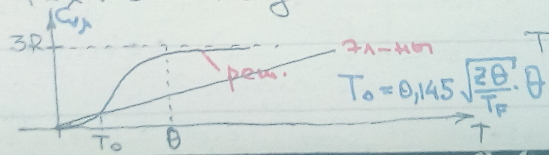 C_Vμ
3R
эл-ны
реш.
T
T₀ = 0,145 √(zθ/T_F) · θ
T₀
θ
T